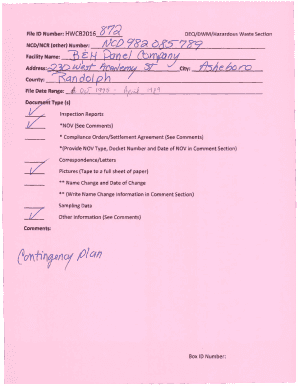 File ID Number: HWCB2016_872 DEQ/DWM/Hazardous Waste Section
NCD/NCR (other) Number: NCD 982 085 789
Facility Name: BEH Panel Company
Address: 230 West Academy St City: Asheboro
County: Randolph
File Date Range: Oct 1990 - April 1989
Document Type (s)
Inspection Reports
*NOV (See Comments)
* Compliance Orders/Settlement Agreement (See Comments)
*(Provide NOV Type, Docket Number and Date of NOV in Comment Section)
Correspondence/Letters
Pictures (Tape to a full sheet of paper)
** Name Change and Date of Change
** (Write Name Change Information in Comment Section)
Sampling Data
Other Information (See Comments)
Comments:
Contingency plan
Box ID Number: